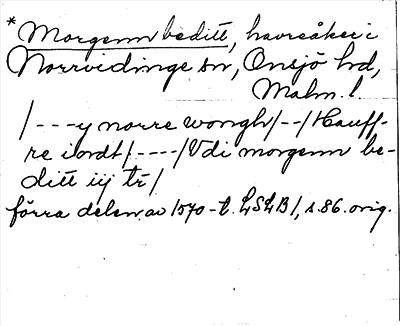 * Morgenn beditt, havreåker i
Norrvidinge sn, Onsjö hd,
Malm. l.
/---y norre wongh/--/Hauff-
re iordt/----/Udi morgenn be-
ditt iij tr/
förra delen av 1570-t. LSLB1, s. 86. orig.